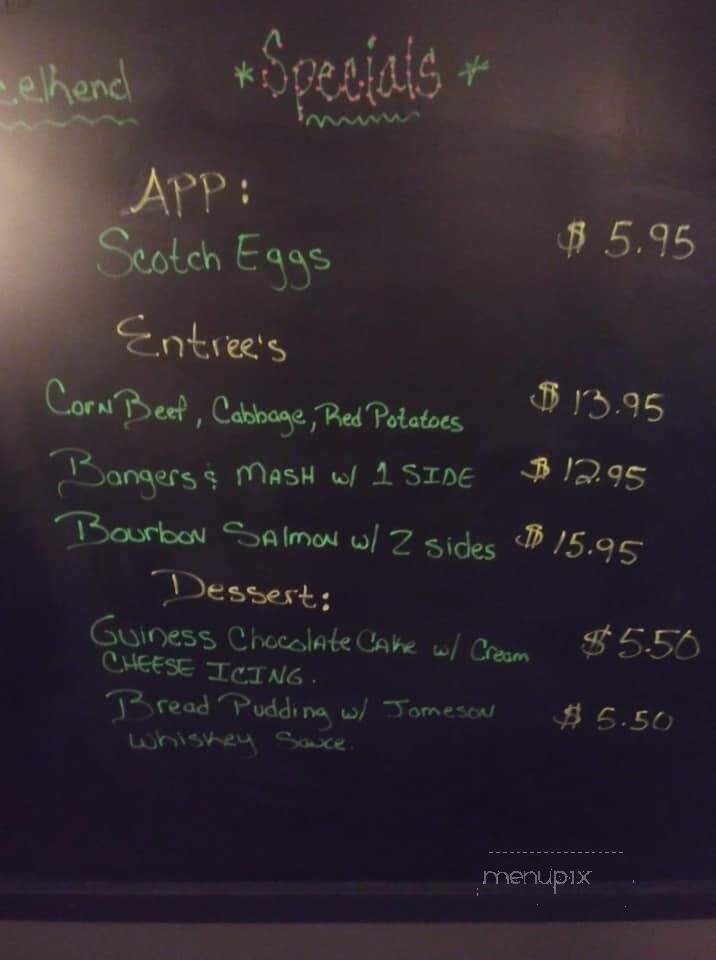 *Specials*
APP:
Scotch Eggs $ 5.95
Entree's
Corn Beef, Cabbage, Red Potatoes $ 13.95
Bangers & MASH w/ 1 SIDE $ 12.95
Bourbon Salmon w/ 2 sides $ 15.95
Dessert:
Guiness Chocolate Cake w/ Cream $5.50
CHEESE ICING.
Bread Pudding w/ Jameson $ 5.50
whiskey Sauce.
menupix